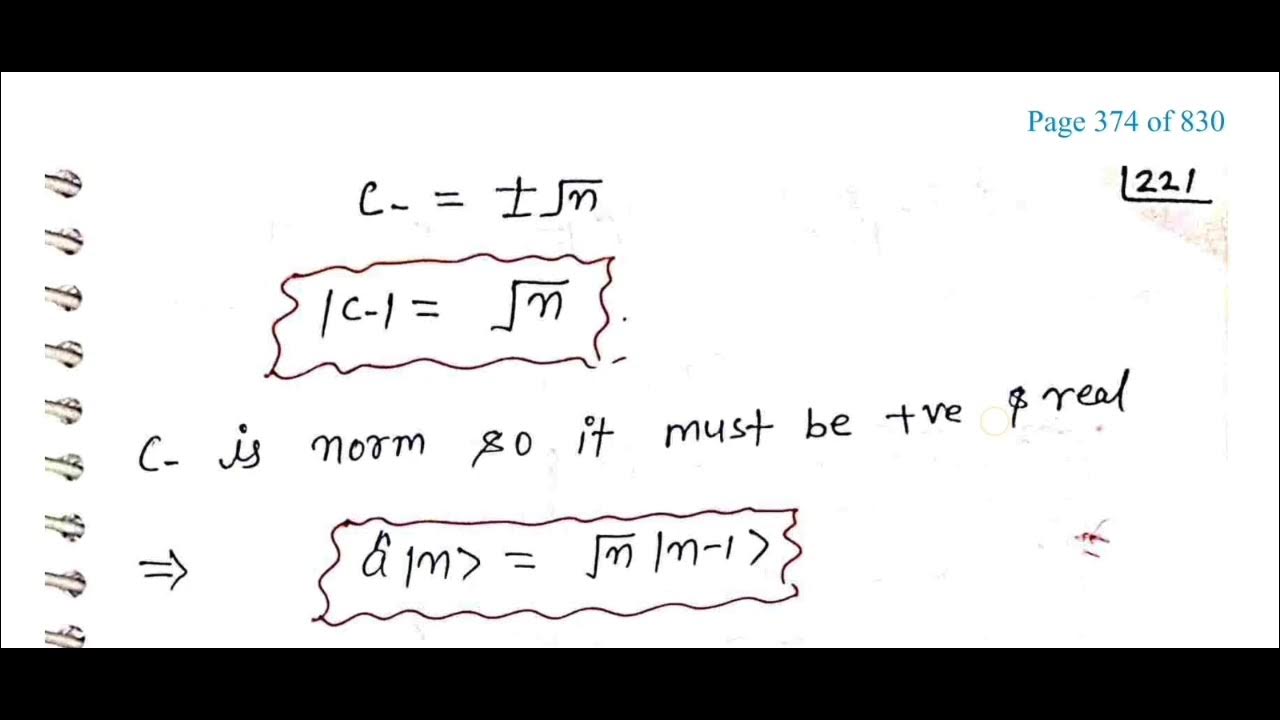 Page 374 of 830
221
C- = ±√n
|C-| = √n.
C- is norm so it must be +ve & real
⇒ â |n> = √n |n-1>